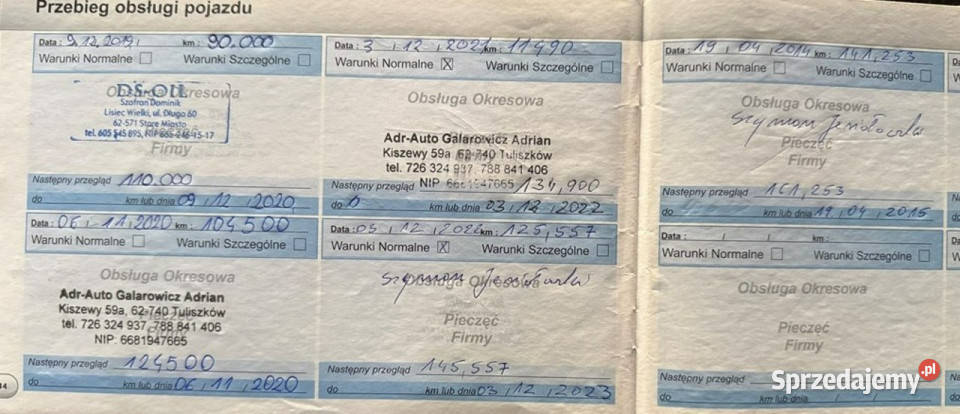 Przebieg obsługi pojazdu
Data : 9.12.2019, km : 90.000
Warunki Normalne Warunki Szczególne
Obsługa Okresowa
DS-OIL
Szafran Dominik
Lisiec Wielki, ul. Długa 60
62-571 Stare Miasto
tel. 605 545 895, NIP 665-246-15-17
Pieczęć
Firmy
Następny przegląd 110.000
do km lub dnia 09, 12, 2020
Data : 3, 12, 2021 km : 11490
Warunki Normalne X Warunki Szczególne
Obsługa Okresowa
Adr-Auto Galarowicz Adrian
Kiszewy 59a, 62-740 Tuliszków
tel. 726 324 937, 788 841 406
NIP 6681947665
Firmy
Następny przegląd 134,900
do km lub dnia 03, 12, 2022
Data : 06, 11, 2020 km : 104500
Warunki Normalne Warunki Szczególne
Obsługa Okresowa
Adr-Auto Galarowicz Adrian
Kiszewy 59a, 62-740 Tuliszków
tel. 726 324 937, 788 841 406
NIP: 6681947665
Pieczęć
Firmy
Następny przegląd 124500
do km lub dnia 06, 11, 2020
14
Data : 05, 12, 2022 km : 125,557
Warunki Normalne X Warunki Szczególne
Obsługa Okresowa
Szymon
Pieczęć
Firmy
Następny przegląd 145,557
do km lub dnia 03, 12, 2023
Data : 19, 04, 2014 km : 141,253
Warunki Normalne Warunki Szczególne
Obsługa Okresowa
Szymon
Pieczęć
Firmy
Następny przegląd 161,253
do km lub dnia 19, 04, 2015
Data : / / km :
Warunki Normalne Warunki Szczególne
Obsługa Okresowa
Pieczęć
Firmy
Następny przegląd
do km lub dnia / /
Sprzedajemy.pl